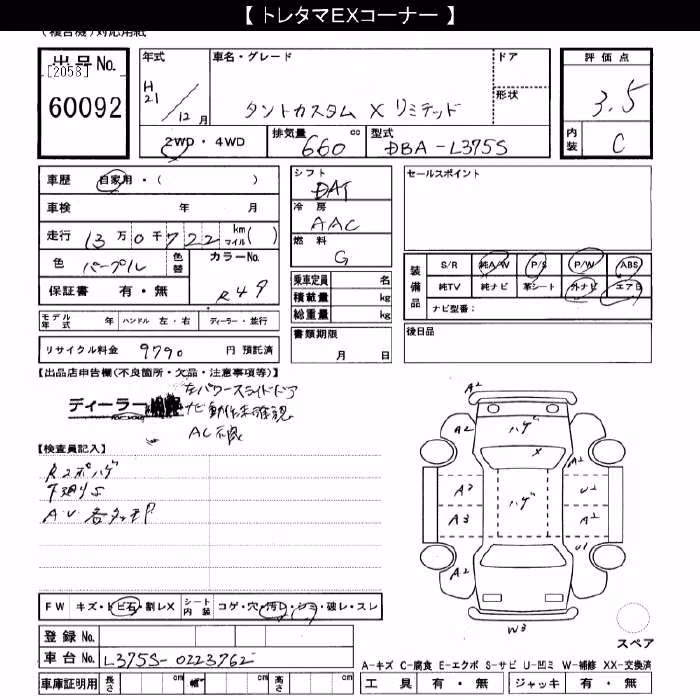 【 トレタマEXコーナー 】
(複合機)対応用紙
出品No.
[2058]
60092
年式 車名・グレード ドア 評価点
H21 / 12月 タントカスタム X リミテッド 形状 3.5
2WD・4WD 排気量 660 cc 型式 DBA-L375S 内装 C
車歴 自家用・( )
シフト DAT
セールスポイント
車検 年 月
冷房 AAC
走行 13万0千722 km マイル( )
燃料 G
色 パープル 色替 カラーNo. R49
装備品 S/R 純A/W P/S P/W ABS
純TV 純ナビ 革シート 外ナビ エアB
ナビ型番:
保証書 有・無
乗車定員 名
積載量 kg
総重量 kg
モデル年式 年 ハンドル 左・右 ディーラー・並行
書類期限 月 日
後日品
リサイクル料金 9790 円 預託済
【出品店申告欄(不良箇所・欠品・注意事項等)】
左パワースライドドア
ディーラー ナビ動作未確認
AC不良
【検査員記入】
Rスポハゲ
下廻りS
AU 各タッチP
FW キズ・トビ石・割レX シート内装 コゲ・穴・汚レ・シミ・破レ・スレ
登録No.
車台No. L375S-0223762
車庫証明用 長さ cm 幅 cm 高さ cm
A2
A2
ハゲ
X
A2
A2
ハゲ
U2
A3
A2
U1
A2
W3
スペア
A-キズ C-腐食 E-エクボ S-サビ U-凹ミ W-補修 XX-交換済
工具 有・無 ジャッキ 有・無